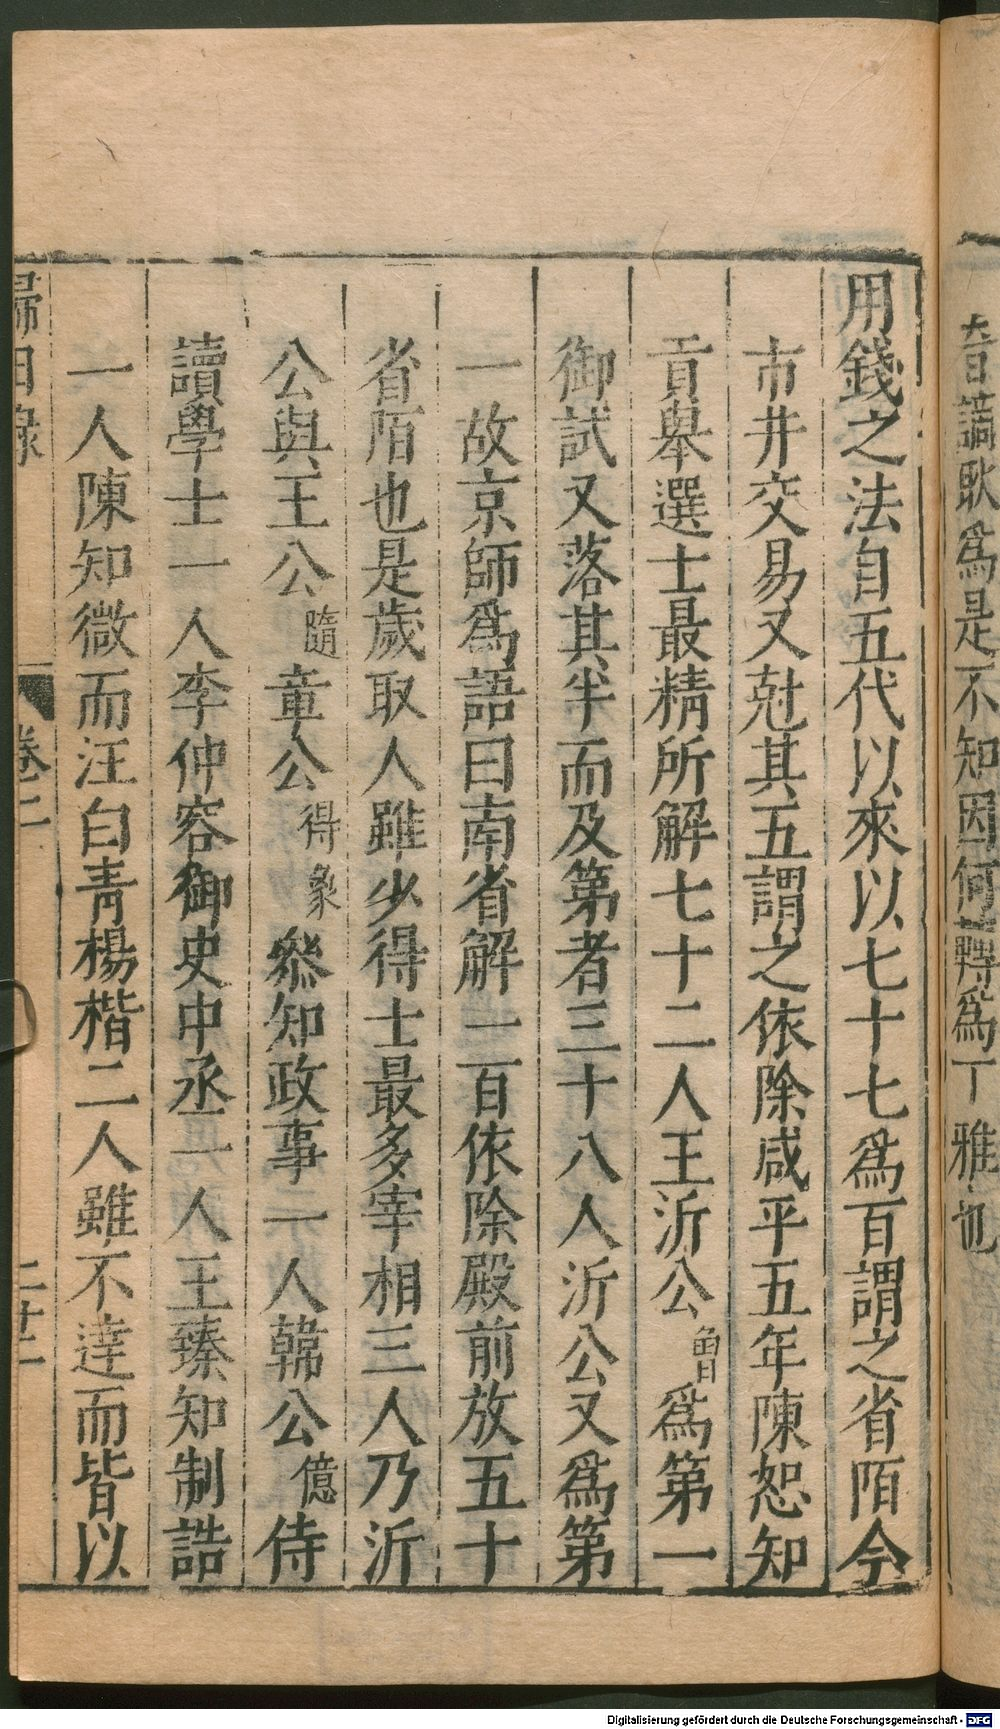 音譌耿爲是不知因何轉爲丁雅也
用錢之法自五代以來以七十七爲百謂之省陌今
市井交易又尅其五謂之依除咸平五年陳恕知
貢舉選士最精所解七十二人王沂公曾爲第一
御試又落其半而及第者三十八人沂公又爲第
一故京師爲語曰南省解一百依除殿前放五十
省陌也是歲取人雖少得士最多宰相三人乃沂
公與王公隨章公得象叅知政事一人韓公億侍
讀學士一人李仲容御史中丞一人王臻知制誥
一人陳知微而汪白青楊楷二人雖不達而皆以
歸田錄 卷二 二十二
Digitalisierung gefördert durch die Deutsche Forschungsgemeinschaft - DFG